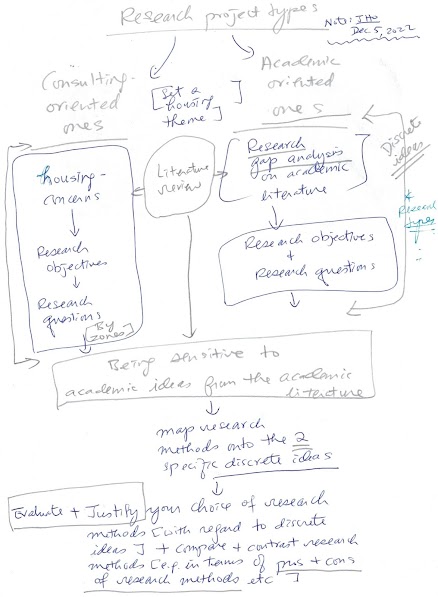 Research project types
Note: JHo
Dec 5, 2022
Consulting-
oriented
ones
[Set a
housing
theme]
Academic
oriented
ones
Discrete
ideas
housing-
concerns
Research
objectives
Research
questions
[By
zones]
Literature
review
[Research
gap analysis
on academic
literature]
Research objectives
+
Research questions
* Research
types
Being sensitive to
academic ideas from the academic
literature
map research
methods onto the 2
specific discrete ideas
Evaluate + Justify your choice of research
methods [with regard to discrete
ideas] + compare + contrast research
methods [e.g. in terms of pros + cons
of research methods etc]